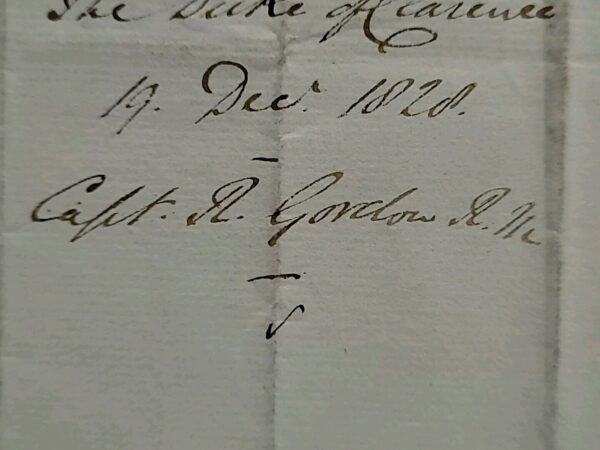 The Duke of Clarence
19. Decr. 1828.
Capt. R. Gordon R. N